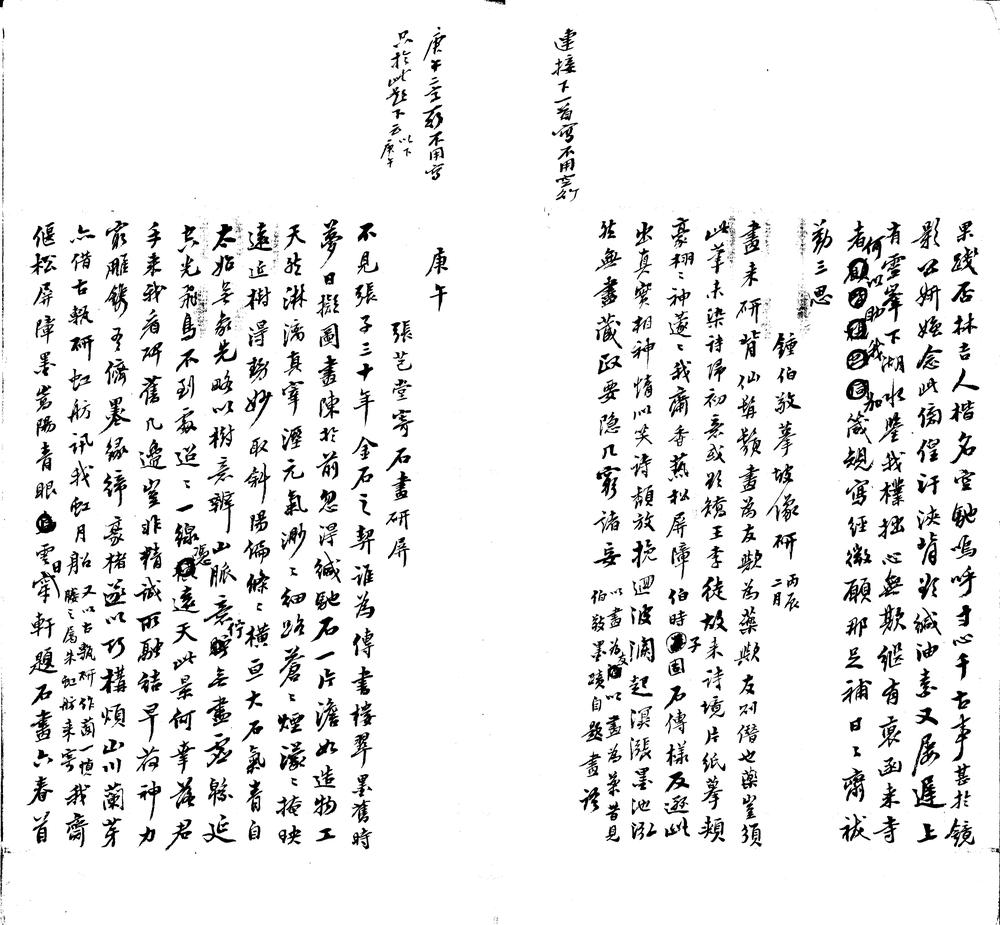 連接下一首寫不用空行
果踐否林吉人楷名空馳嗚呼寸心千古事甚於鏡
影公妍媸念此傍徨汗浹背緘油素又屢遲上
有靈峯下湖水鑒我樸拙心無欺繼有裒函來寺
者何以助我加箴規寫經微願那足補日日齋祓
勤三思
鍾伯敬摹坡像研丙辰二月
畫來研背仙鬚鬢畫為友歟為藥歟友列僭也藥豈須
此筆未染詩歸初意或貌鏡王李徒故來詩境片紙摹頰
豪栩栩神蘧蘧我齋香爇松屏障伯時子固石傳樣反遜此
出真實相神情似笑詩顏放挽迴波瀾起溟漲墨池泓
然無盡藏政要隱几窮諸妄
以畫為友以畫為藥昔見
伯敬墨蹟自題畫語
庚午二字不用寫
只於此題下云以下庚午
庚午
張芑堂寄石畫研屏
不見張子三十年金石之契誰為傳書樓翠墨舊時
夢日擬圖畫陳於前忽得緘馳石一片澹如造物工
天然淋漓真宰溼元氣渺渺細路蒼蒼煙濛濛掩映
遠近樹得勢妙取斜陽偏絛絛橫亘大石氣青自
太始無象先略以樹意辨山脈意盡虛緜延
去光飛鳥不到處迢迢一線遠天此景何筆落君
手來我看研舊几邊豈非精誠所融結早荷神力
窮雕鐫吾儕墨緣締豪楮遂以巧構煩山川蘭芽
亦借古甎研虹舫訊我虹月船
又以古甎研作蘭一幀
朱虹舫來寄
我齋
偃松屏障墨嵩陽青眼雲軒題石畫六春首